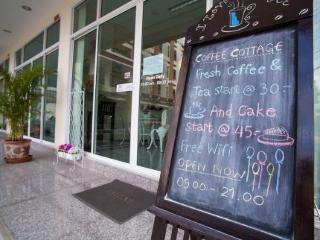 COFFEE COTTAGE
Fresh Coffee &
Tea start @ 30.-
And Cake
start @ 45.-
Free Wifi
OPEN NOW
09.00 - 21.00